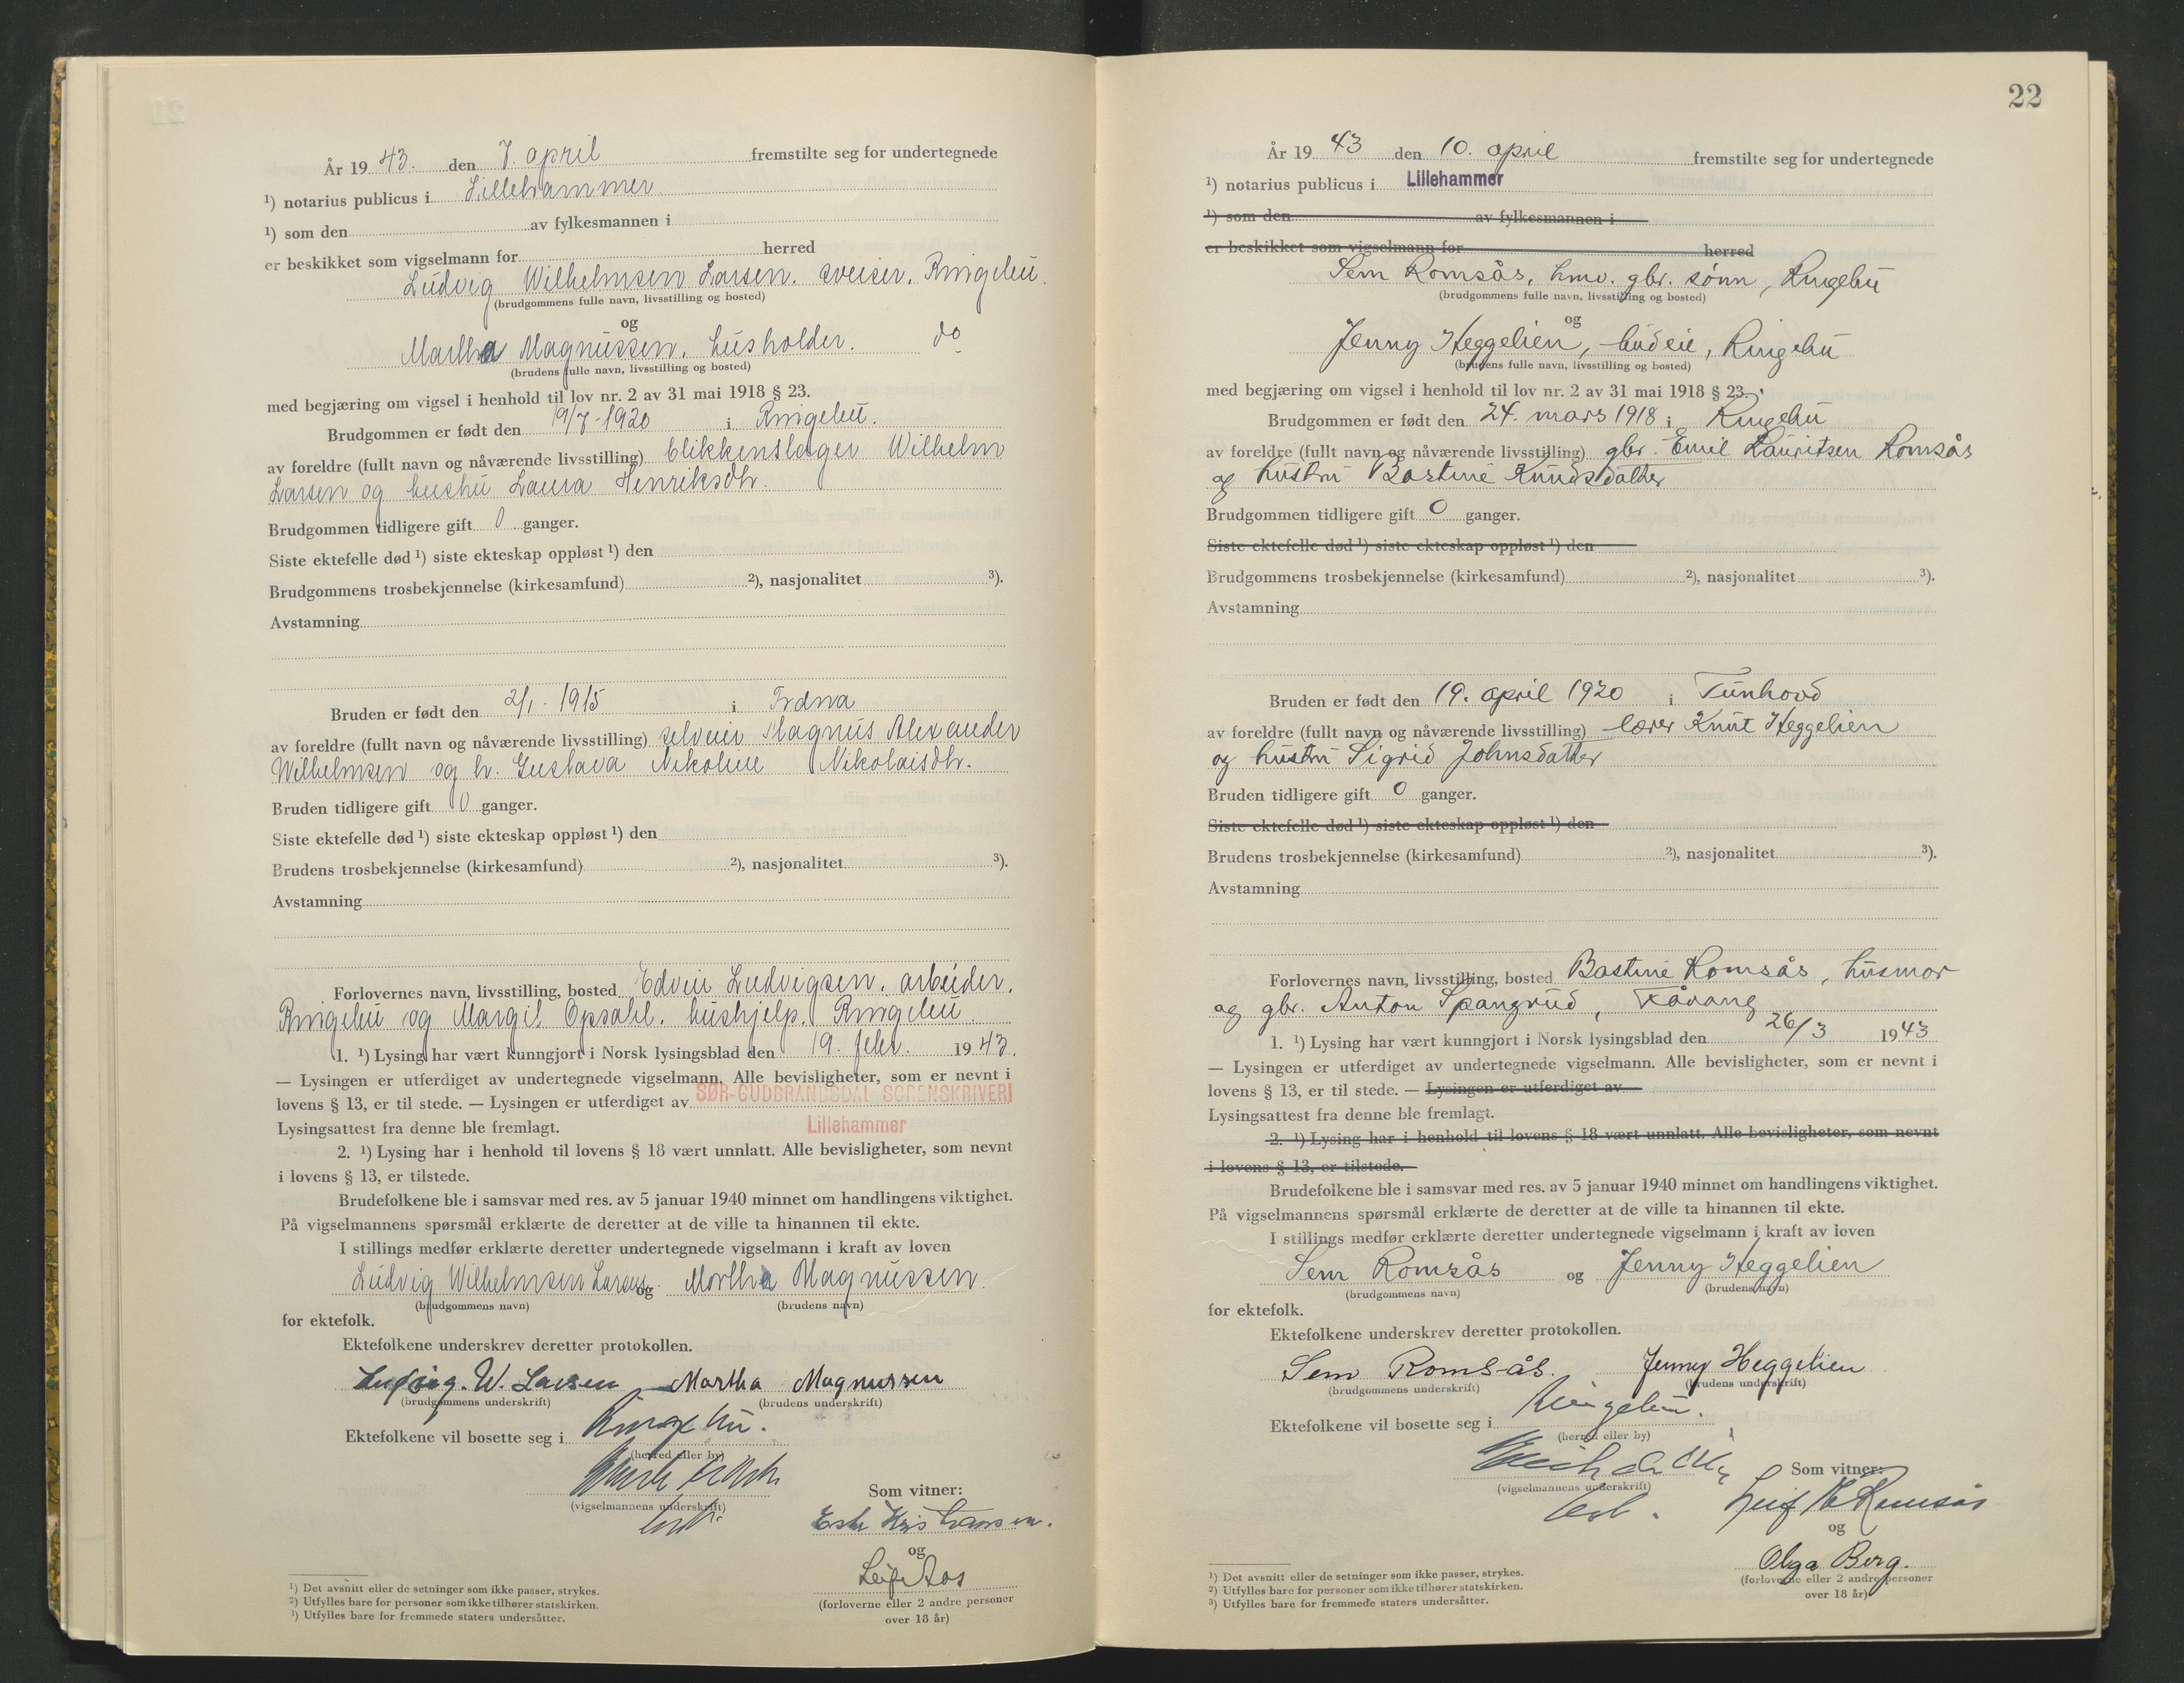 År 19 43. den 7. april fremstilte seg for undertegnede
¹) notarius publicus i Lillehammer
¹) som den av fylkesmannen i
er beskikket som vigselmann for herred
Ludvig Wilhelmsen Larsen. sveiser. Ringebu.
(brudgommens fulle navn, livsstilling og bosted)
og
Martha Magnussen. husholder. do
(brudens fulle navn, livsstilling og bosted)
med begjæring om vigsel i henhold til lov nr. 2 av 31 mai 1918 § 23.
Brudgommen er født den 19/7-1920 i Ringebu.
av foreldre (fullt navn og nåværende livsstilling) blikkenslager Wilhelm
Larsen og hustru Laura Henriksdtr.
Brudgommen tidligere gift 0 ganger.
Siste ektefelle død ¹) siste ekteskap oppløst ¹) den
Brudgommens trosbekjennelse (kirkesamfund) ²), nasjonalitet ³).
Avstamning
Bruden er født den 2/1. 1915 i
av foreldre (fullt navn og nåværende livsstilling) selveier Magnus Alexander
Wilhelmsen og h. Gustava Nikoline Nikolaisdtr.
Bruden tidligere gift 0 ganger.
Siste ektefelle død ¹) siste ekteskap oppløst ¹) den
Brudens trosbekjennelse (kirkesamfund) ²), nasjonalitet ³).
Avstamning
Forlovernes navn, livsstilling, bosted Edvin Ludvigsen. arbeider.
Ringebu og Margit Opsahl. hushjelp. Ringebu.
1. ¹) Lysing har vært kunngjort i Norsk lysingsblad den 19. febr. 19 43.
— Lysingen er utferdiget av undertegnede vigselmann. Alle bevisligheter, som er nevnt i
lovens § 13, er til stede. — Lysingen er utferdiget av SØR-GUDBRANDSDAL SORENSKRIVERI
Lysingsattest fra denne ble fremlagt. Lillehammer
2. ¹) Lysing har i henhold til lovens § 18 vært unnlatt. Alle bevisligheter, som nevnt
i lovens § 13, er tilstede.
Brudefolkene ble i samsvar med res. av 5 januar 1940 minnet om handlingens viktighet.
På vigselmannens spørsmål erklærte de deretter at de ville ta hinannen til ekte.
I stillings medfør erklærte deretter undertegnede vigselmann i kraft av loven
Ludvig Wilhelmsen Larsen og Martha Magnussen.
(brudgommens navn) (brudens navn)
for ektefolk.
Ektefolkene underskrev deretter protokollen.
Ludvig. W. Larsen Martha Magnussen
(brudgommens underskrift) (brudens underskrift)
Ektefolkene vil bosette seg i Ringebu.
(herred eller by)
(vigselmannens underskrift)
Som vitner:
Kristiansen.
og
Leif Aos
(forloverne eller 2 andre personer
over 18 år)
¹) Det avsnitt eller de setninger som ikke passer, strykes.
²) Utfylles bare for personer som ikke tilhører statskirken.
³) Utfylles bare for fremmede staters undersåtter.
22
År 19 43 den 10. april fremstilte seg for undertegnede
¹) notarius publicus i Lillehammer
¹) som den av fylkesmannen i
er beskikket som vigselmann for herred
Sem Romsås, hmv. gbr. sønn, Ringebu
(brudgommens fulle navn, livsstilling og bosted)
og
Jenny Heggelien, budeie, Ringebu
(brudens fulle navn, livsstilling og bosted)
med begjæring om vigsel i henhold til lov nr. 2 av 31 mai 1918 § 23.
Brudgommen er født den 24. mars 1918 i Ringebu
av foreldre (fullt navn og nåværende livsstilling) gbr. Emil Lauritsen Romsås
og hustru Bastine Knudsdatter
Brudgommen tidligere gift 0 ganger.
Siste ektefelle død ¹) siste ekteskap oppløst ¹) den
Brudgommens trosbekjennelse (kirkesamfund) ²), nasjonalitet ³).
Avstamning
Bruden er født den 19. april 1920 i Tunhovd
av foreldre (fullt navn og nåværende livsstilling) lærer Knut Heggelien
og hustru Sigrid Johnsdatter
Bruden tidligere gift 0 ganger.
Siste ektefelle død ¹) siste ekteskap oppløst ¹) den
Brudens trosbekjennelse (kirkesamfund) ²), nasjonalitet ³).
Avstamning
Forlovernes navn, livsstilling, bosted Bastine Romsås, husmor
og gbr. Anton Spangrud, Fåvang
1. ¹) Lysing har vært kunngjort i Norsk lysingsblad den 26/3 19 43
— Lysingen er utferdiget av undertegnede vigselmann. Alle bevisligheter, som er nevnt i
lovens § 13, er til stede. — Lysingen er utferdiget av
Lysingsattest fra denne ble fremlagt.
2. ¹) Lysing har i henhold til lovens § 18 vært unnlatt. Alle bevisligheter, som nevnt
i lovens § 13, er tilstede.
Brudefolkene ble i samsvar med res. av 5 januar 1940 minnet om handlingens viktighet.
På vigselmannens spørsmål erklærte de deretter at de ville ta hinannen til ekte.
I stillings medfør erklærte deretter undertegnede vigselmann i kraft av loven
Sem Romsås og Jenny Heggelien
(brudgommens navn) (brudens navn)
for ektefolk.
Ektefolkene underskrev deretter protokollen.
Sem Romsås. Jenny Heggelien
(brudgommens underskrift) (brudens underskrift)
Ektefolkene vil bosette seg i Ringebu.
(herred eller by)
(vigselmannens underskrift)
Som vitner:
Leif Romsås
og
Olga Berg.
(forloverne eller 2 andre personer
over 18 år)
¹) Det avsnitt eller de setninger som ikke passer, strykes.
²) Utfylles bare for personer som ikke tilhører statskirken.
³) Utfylles bare for fremmede staters undersåtter.